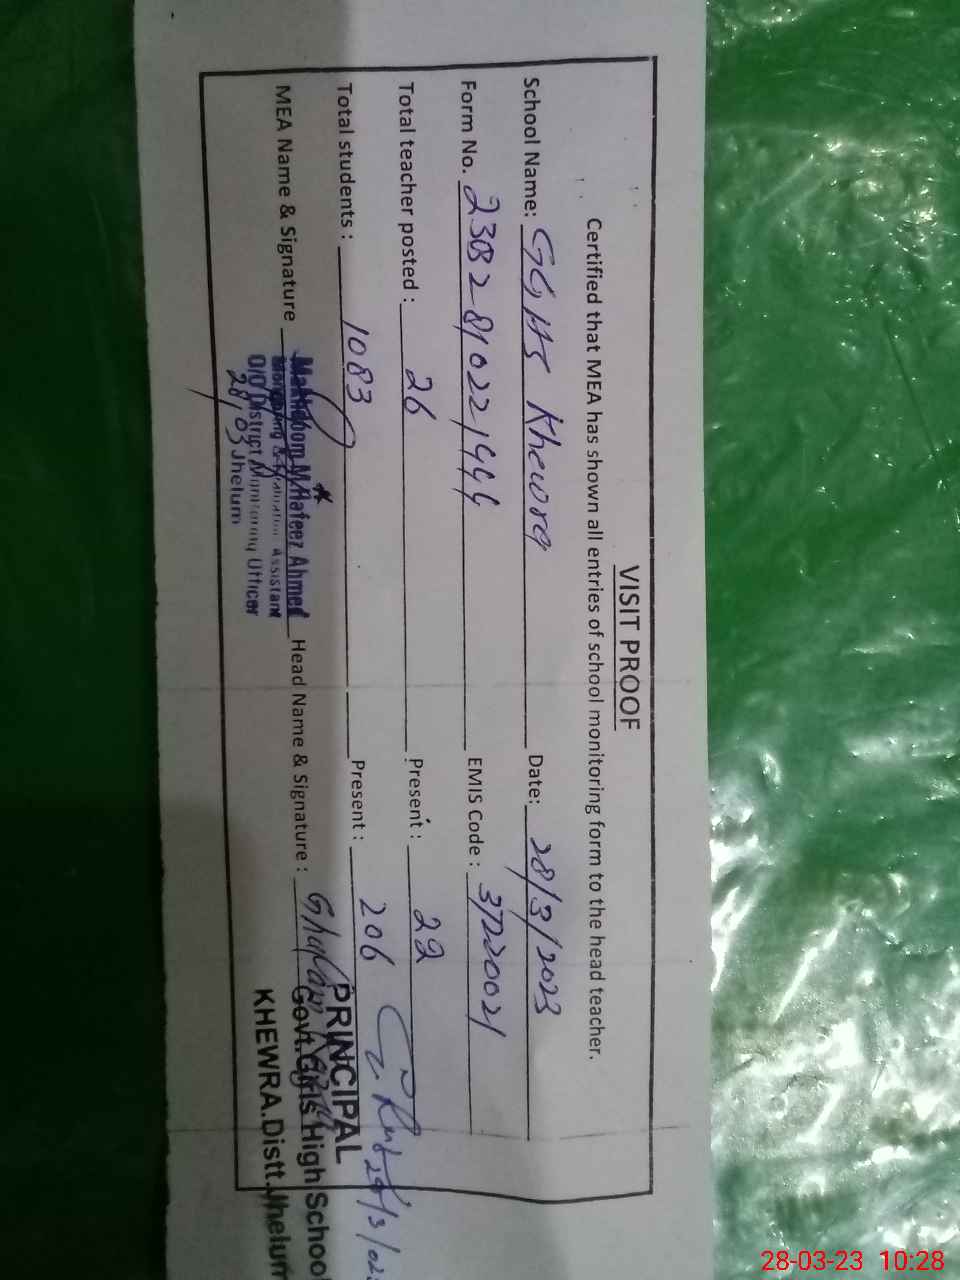 VISIT PROOF
Certified that MEA has shown all entries of school monitoring form to the head teacher.
School Name: GGHS Khewra Date: 28/3/2023
Form No. EMIS Code: 37220021
Total teacher posted: 26 Present: 22
Total students: 1083 Present: 206
MEA Name & Signature Head Name & Signature:
Makhdoom M Hafeez Ahmed
Monitoring & Evaluation Assistant
O/O District Monitoring Officer
Jhelum
28/03
PRINCIPAL
Govt. Girls High School
KHEWRA.Distt.Jhelum
28-03-23 10:28